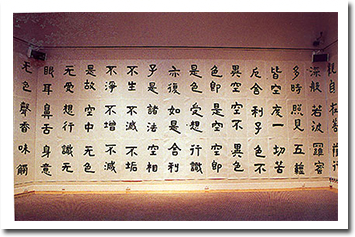 觀自在菩薩行
深般若波羅蜜
多時照見五蘊
皆空度一切苦
厄舍利子色不
異空空不異色
色即是空空即
是色受想行識
亦復如是舍利
子是諸法空相
不生不滅不垢
不淨不增不減
是故空中无色
无受想行識无
眼耳鼻舌身意
无色聲香味觸